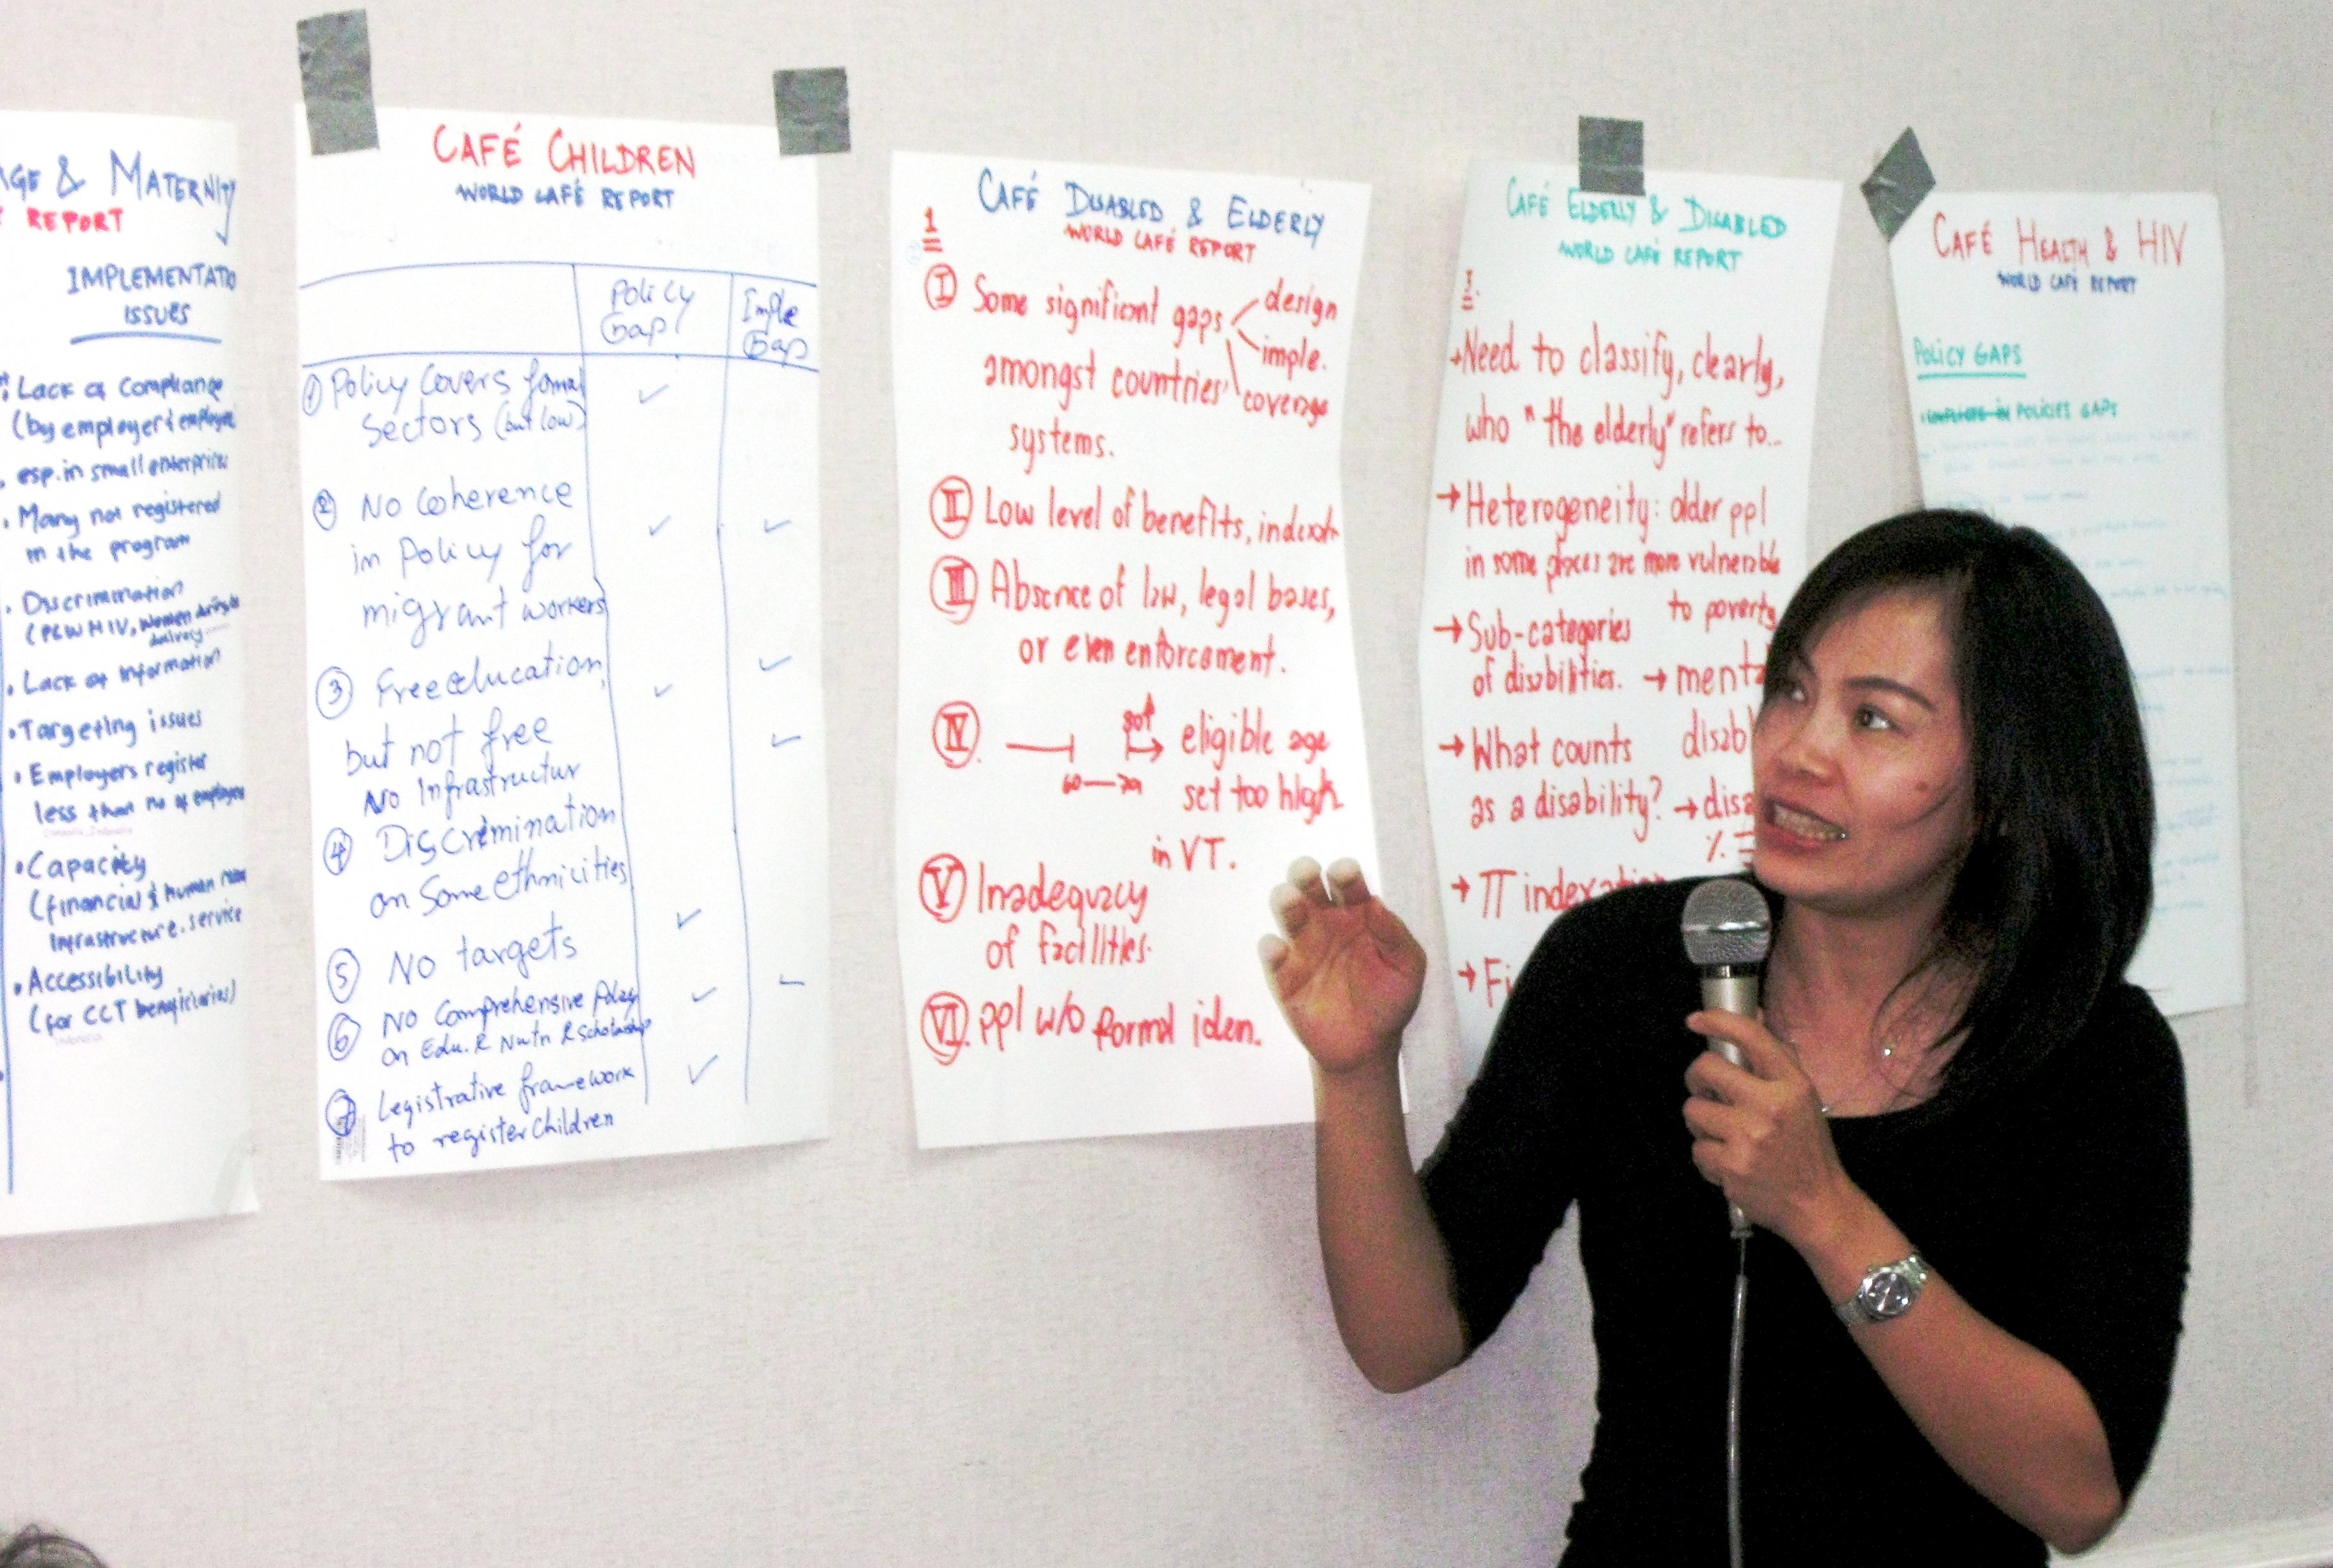 AGE & MATERNITY
REPORT
IMPLEMENTATIO
ISSUES
Lack of Compliance
(by employer & employee
esp. in small enterprises
Many not registered
in the program
Discrimination
(PLWHIV, Women
Lack of Information
Targeting issues
Employers register
less than no of employee
Capacity
(financial & human
Infrastructure. service
Accessibility
(for CCT beneficiaries)
Indonesia
CAFÉ CHILDREN
WORLD CAFÉ REPORT
Policy Gap
Imple Gap
1 Policy Covers formal
sectors (but low)
2 NO Coherence
in Policy for
migrant workers
3 Free education,
but not free
NO Infrastructur
4 Discrimination
on Some ethnicities
5 NO targets
6 NO Comprehensive Policy
on Edu. & Nutn & Scholarship
7 Legistrative framework
to register Children
CAFÉ DISABLED & ELDERLY
1 WORLD CAFÉ REPORT
I Some significant gaps design
imple.
amongst countries' coverage
systems.
II Low level of benefits,
III Absence of law, legal bases,
or even enforcement.
IV. 80+ eligible age
60 — 79 set too high
in VT.
V Inadequacy
of facilities.
VI. ppl w/o formal iden.
CAFÉ ELDERLY & DISABLED
WORLD CAFÉ REPORT
I.
→Need to classify, clearly,
who "the elderly" refers to...
→Heterogeneity: older ppl
in some places are more vulnerable
to poverty
→Sub-categories
of disabilities. → menta
→What counts disab
as a disability? → disa
% =
→ π indexatio
→ Fi
CAFÉ HEALTH & HIV
WORLD CAFÉ REPORT
POLICY GAPS
POLICIES GAPS